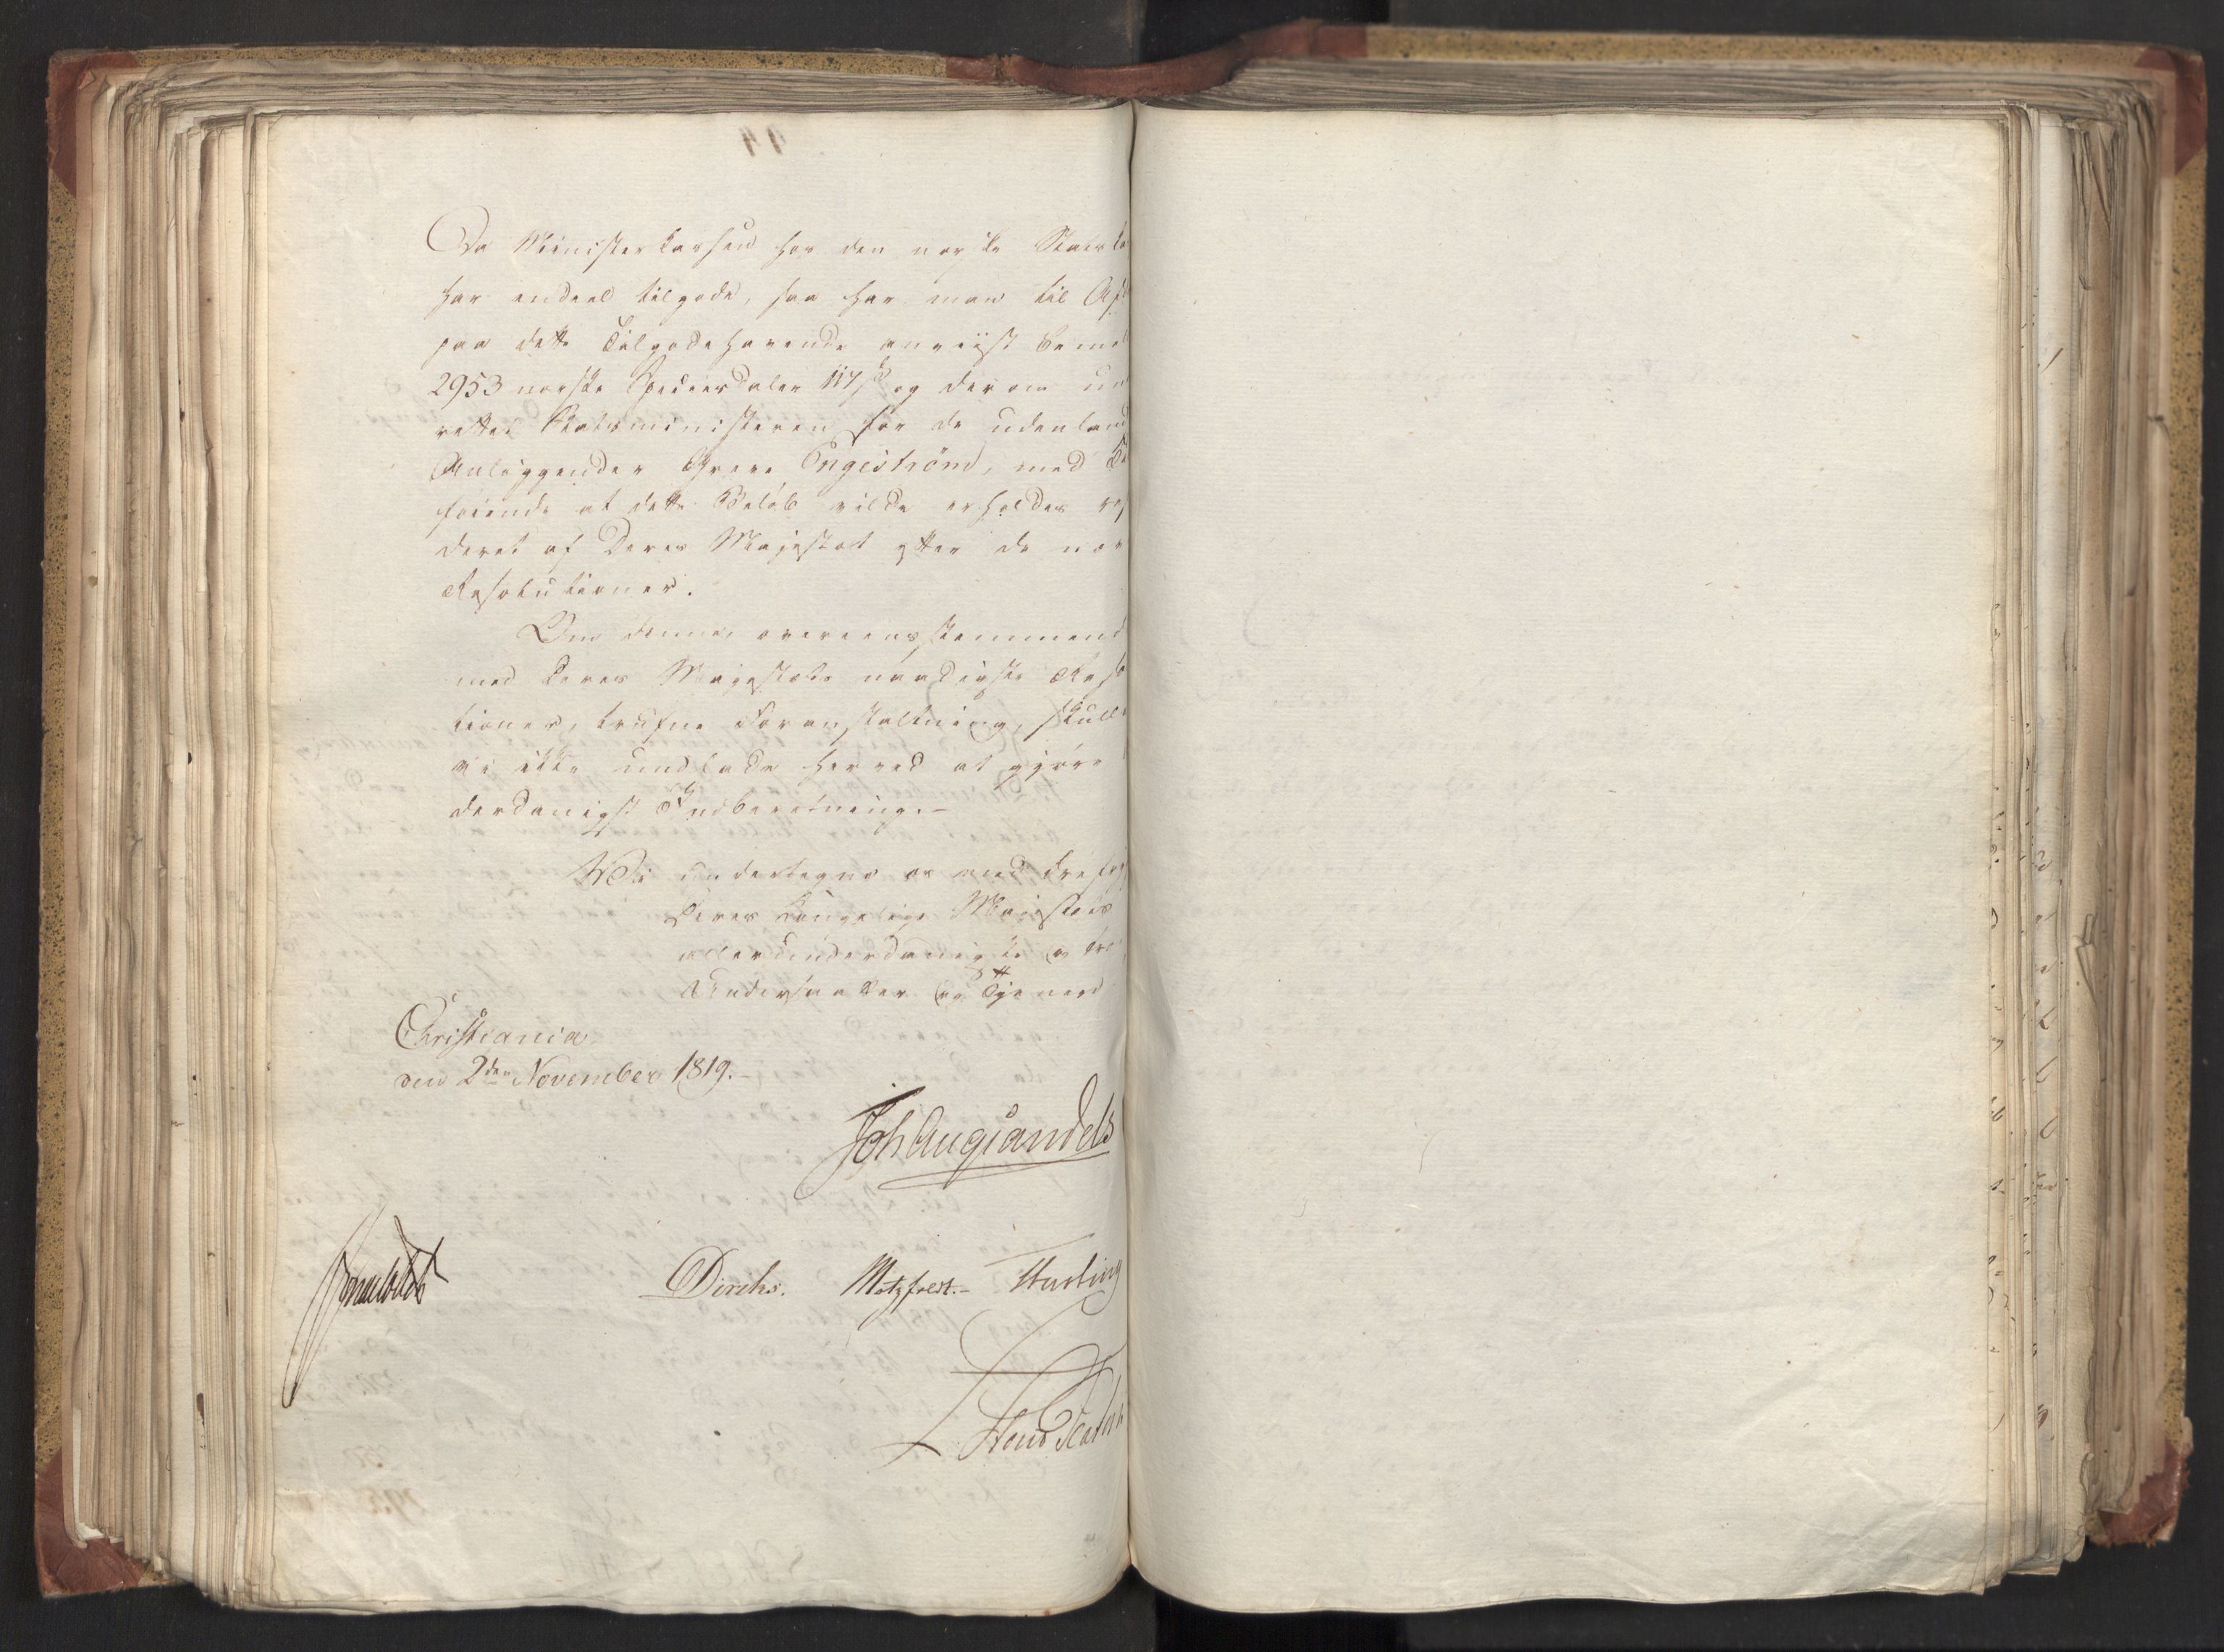 Da Ministerkassen hos den norske Stats
har endeel tilgode, saa har man til Af
paa dette Tilgodehavende anviist
2953 norske Speciesdaler 117 s og derom
rettet Statsministeren for de udenland
Anliggender Greve Engeström, med
føiende at dette Beløb vilde erholdes
deret af Deres Majestæt efter de
Resolutioner.
Om denne, overeensstemmend
med Deres Majestæts naadigste Reso
tioner, trufne Foranstaltning, skull
vi ikke undlade herved at gjøre
derdanigst Indberetning.-
Vi undertegne os med
Deres Kongelige Majestæts
allerunderdanigste og tro
Undersaatter og Tjenere
Christiania
den 2den November 1819.-
Joh Aug Sandels
Sommerhielm
Diriks. Motzfeldt.- Hersleb